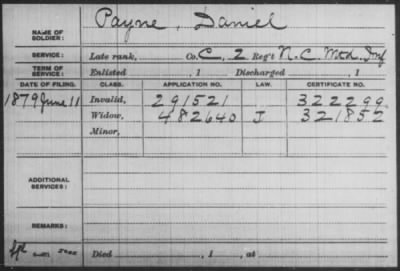 Payne, Daniel
NAME OF SOLDIER:
SERVICE: Late rank, Co. C, 2 Reg't N.C. Mtd. Inf
TERM OF SERVICE: Enlisted , 1 Discharged , 1
DATE OF FILING. CLASS. APPLICATION NO. LAW. CERTIFICATE NO.
1879 June 11 Invalid, 291521 322299
Widow, 482640 J 321852
Minor,
ADDITIONAL SERVICES:
REMARKS:
Died , 1 , at